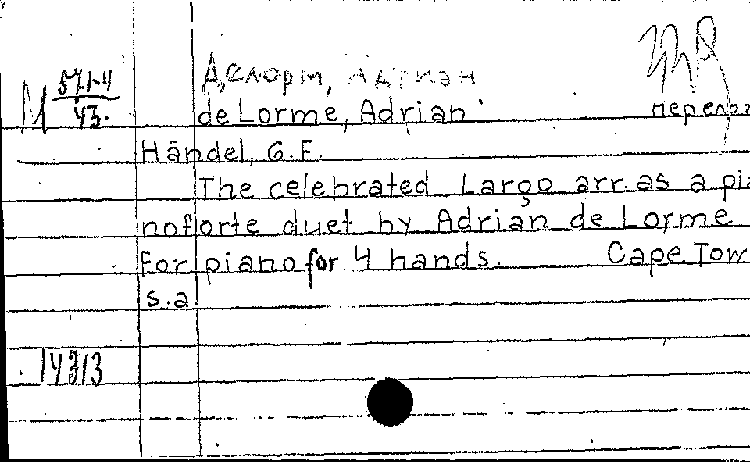 Делорм, Адриэн
M 571-4/43.
de Lorme, Adrian
Händel, G.F.
The celebrated Largo arr. as a pia
noforte duet by Adrian de Lorme
for piano for 4 hands. Cape Tow
s.a
14313